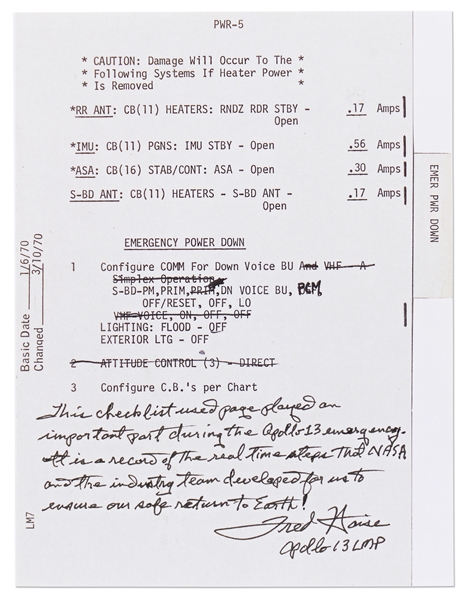 PWR-5
* CAUTION: Damage Will Occur To The *
* Following Systems If Heater Power *
* Is Removed *
*RR ANT: CB(11) HEATERS: RNDZ RDR STBY - .17 Amps
Open
*IMU: CB(11) PGNS: IMU STBY - Open .56 Amps
*ASA: CB(16) STAB/CONT: ASA - Open .30 Amps
S-BD ANT: CB(11) HEATERS - S-BD ANT - .17 Amps
Open
EMER PWR DOWN
EMERGENCY POWER DOWN
1 Configure COMM For Down Voice BU And VHF - A
Simplex Operation
S-BD-PM, PRIM, PRIM, DN VOICE BU, PCM,
OFF/RESET, OFF, LO
VHF VOICE, ON, OFF, OFF
LIGHTING: FLOOD - OFF
EXTERIOR LTG - OFF
2 ATTITUDE CONTROL (3) - DIRECT
3 Configure C.B.'s per Chart
Basic Date 1/6/70
Changed 3/10/70
LM7
This checklist used page played an
important part during the Apollo 13 emergency.
It is a record of the real time steps that NASA
and the industry team developed for us to
ensure our safe return to Earth!
Fred Haise
Apollo 13 LMP